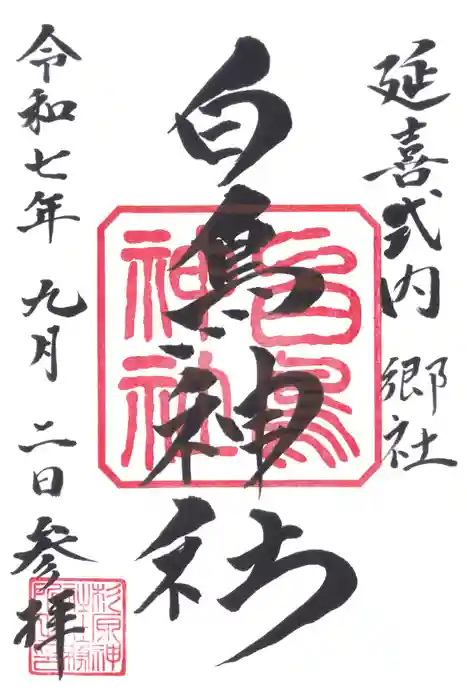 延喜式内 郷社
白鳥神社
白鳥
神社
令和七年 九月 二日 参拝